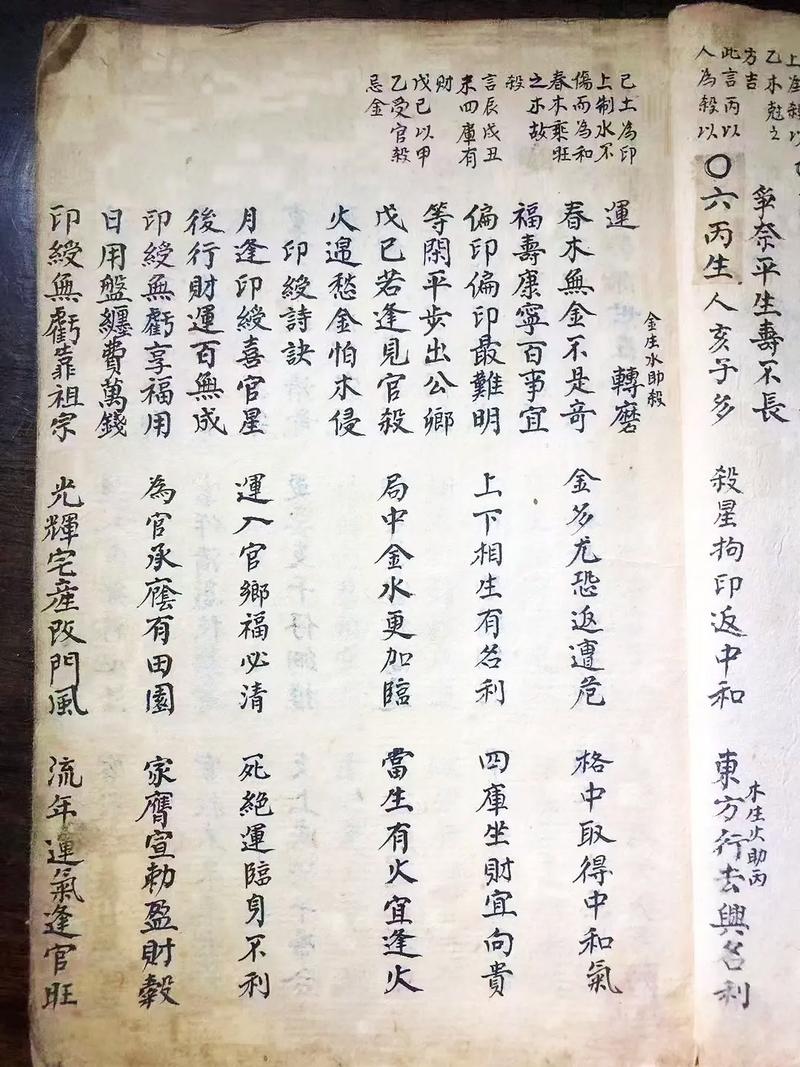 乙木尅之
方吉
此言丙以
人為殺以
爭奈平生壽不長
〇六丙生人亥子多 殺星拘印返中和 東方行去興名利
木生火助丙
己土為印
上制水不
傷而為和
春木乘旺
之木故
殺
言辰戌丑
未四庫有
財
戊己以甲
乙受官殺
忌金
金生水助殺
運 轉磨
春木無金不是奇 金多尤恐返遭危 格中取得中和氣
福壽康寧百事宜
偏印偏印最難明 上下相生有名利 四庫坐財宜向貴
等閑平步出公鄉
戊己若逢見官殺 局中金水更加臨 當生有火宜逢火
火遏愁金怕木侵
印綬詩訣
月逢印綬喜官星 運入官鄉福必清 死絕運臨身不利
後行財運百無成
印綬無虧享福用 為官承廕有田園 家膺宣勅盈財穀
日用盤纏費萬錢
印綬無虧靠祖宗 光輝宅産改門風 流年運氣逢官旺